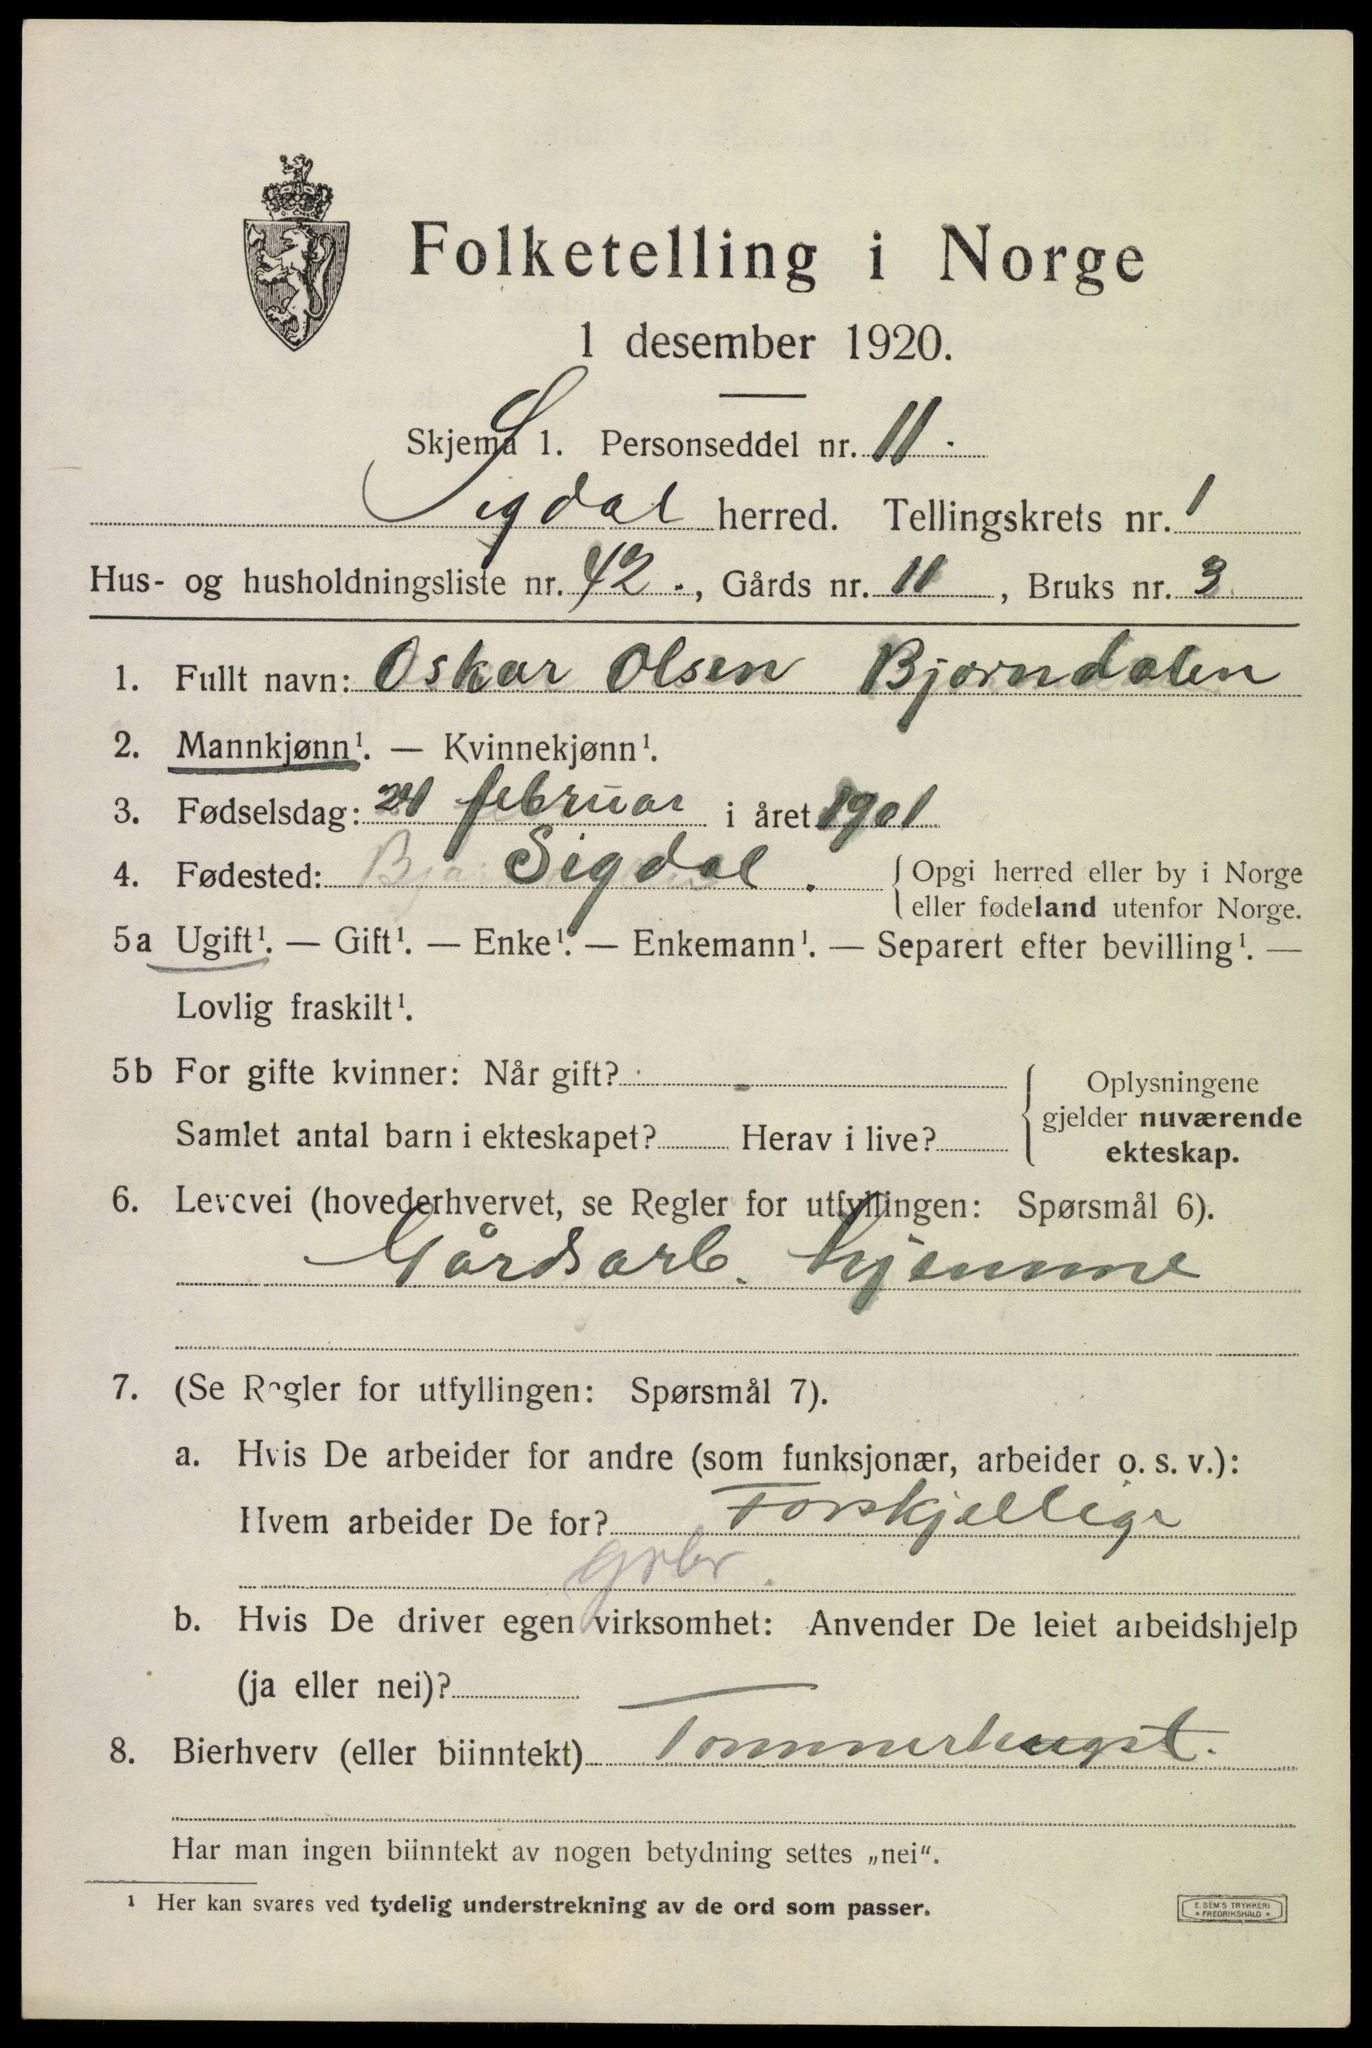 Folketelling i Norge
1 desember 1920.
Skjema 1. Personseddel nr. 11.
Sigdal herred. Tellingskrets nr. 1
Hus- og husholdningsliste nr. 42., Gårds nr. 11, Bruks nr. 3
1. Fullt navn: Oskar Olsen Bjørndalen
2. Mannkjønn¹. — Kvinnekjønn¹.
3. Fødselsdag: 24 februar i året 1901
4. Fødested: Sigdal. { Opgi herred eller by i Norge
eller fødeland utenfor Norge.
5a Ugift¹. — Gift¹. — Enke¹. — Enkemann¹. — Separert efter bevilling¹. —
Lovlig fraskilt¹.
5b For gifte kvinner: Når gift?
Samlet antal barn i ekteskapet? Herav i live?
{ Oplysningene
gjelder nuværende
ekteskap.
6. Levevei (hovederhvervet, se Regler for utfyllingen: Spørsmål 6).
Gårdsarb. hjemme
7. (Se Regler for utfyllingen: Spørsmål 7).
a. Hvis De arbeider for andre (som funksjonær, arbeider o. s. v.):
Hvem arbeider De for? Forskjellige
grbr.
b. Hvis De driver egen virksomhet: Anvender De leiet arbeidshjelp
(ja eller nei)?
8. Bierhverv (eller biinntekt) Tømmerhugst.
Har man ingen biinntekt av nogen betydning settes „nei“.
¹ Her kan svares ved tydelig understrekning av de ord som passer.
E. SEM'S TRYKKERI
FREDRIKSHALD